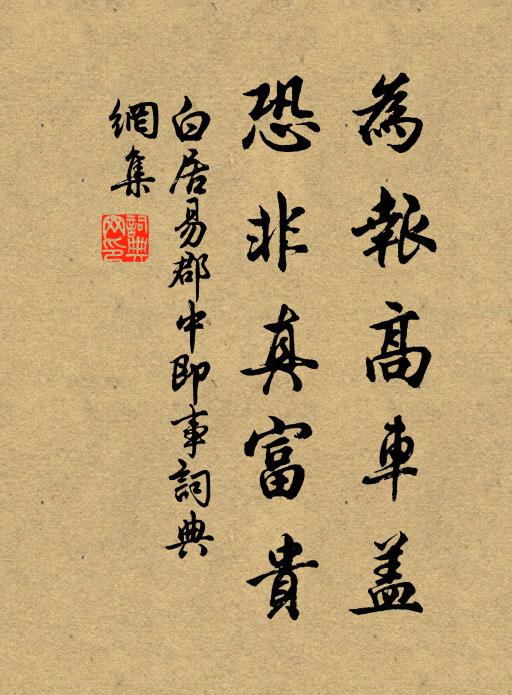 為報高車盖
恐非真富貴
白居易郡中即事詞典
網集
詞典网印